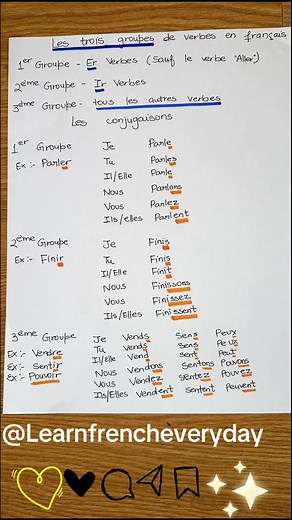 Les trois groupes de verbes en français
1er Groupe - Er Verbes (Sauf le verbe "Aller")
2ème Groupe - Ir Verbes
3ème Groupe - tous les autres verbes
Les conjugaisons
1er Groupe Je Parle
Ex :- Parler Tu Parles
Il/Elle Parle
Nous Parlons
Vous Parlez
Ils/elles Parlent
2ème Groupe Je Finis
Ex :- Finir Tu Finis
Il/Elle Finit
Nous Finissons
Vous Finissez
Ils/Elles Finissent
3ème Groupe Je Vends Sens Peux
Ex:- Vendre Tu Vends Sens Peux
Ex:- Sentir Il/Elle Vend sent Peut
Ex:- Pouvoir Nous Vendons Sentons Pouvons
Vous Vendez sentez Pouvez
Ils/Elles Vendent sentent Peuvent
@Learnfrencheveryday